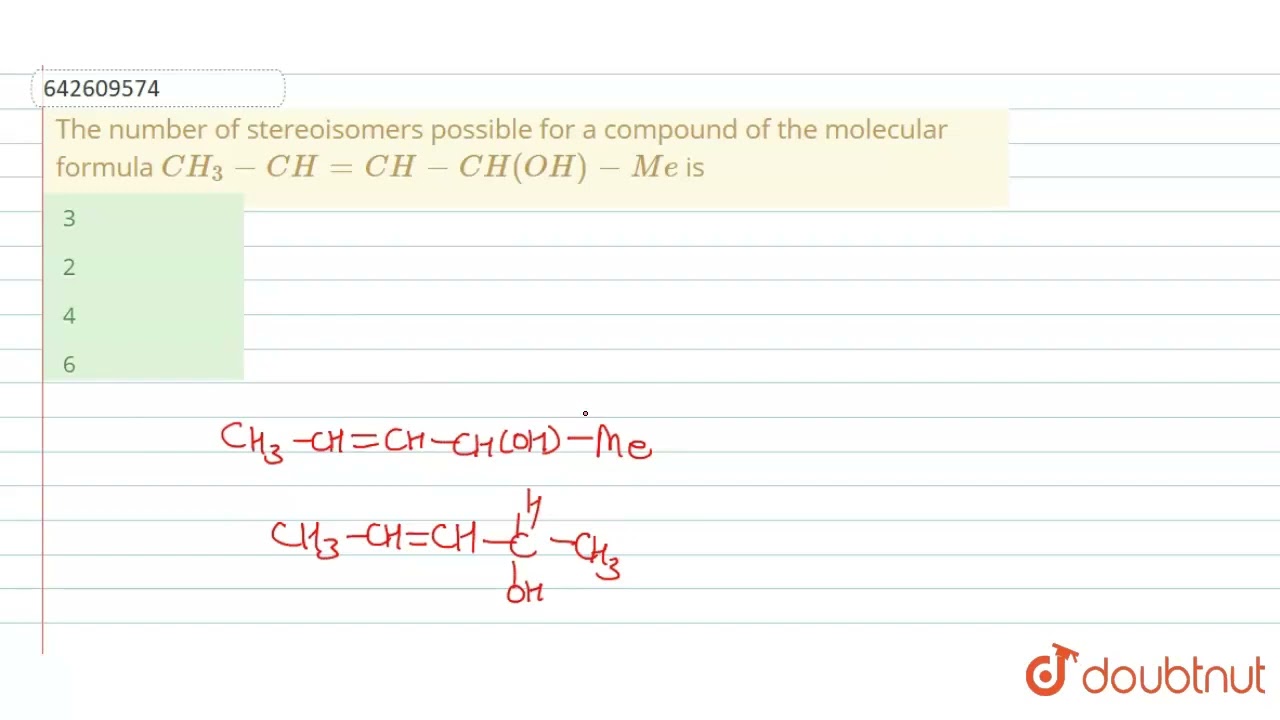 642609574
The number of stereoisomers possible for a compound of the molecular
formula CH₃ − CH = CH − CH(OH) − Me is
3
2
4
6
CH₃ − CH = CH − CH(OH) − Me
H
CH₃ − CH = CH − C − CH₃
OH
doubtnut